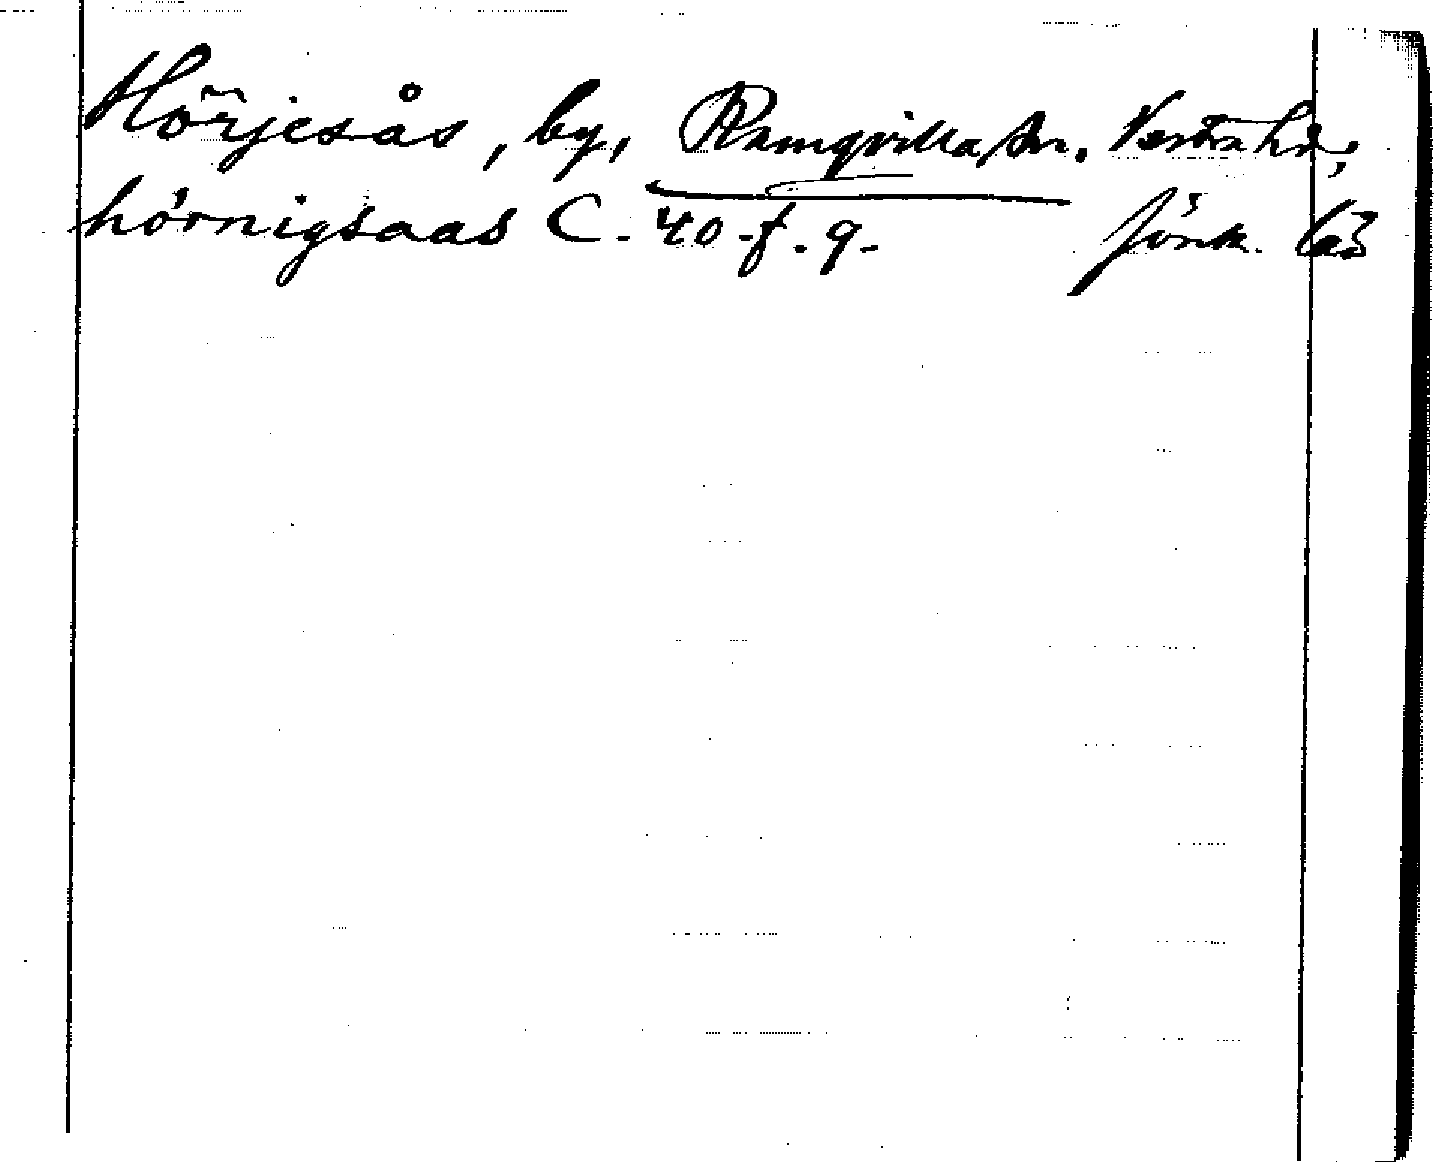 Hörjesås, by, Ramqvilla sn. Västra hd,
hörnigsaas C. 40 f. 9. Jönk. län